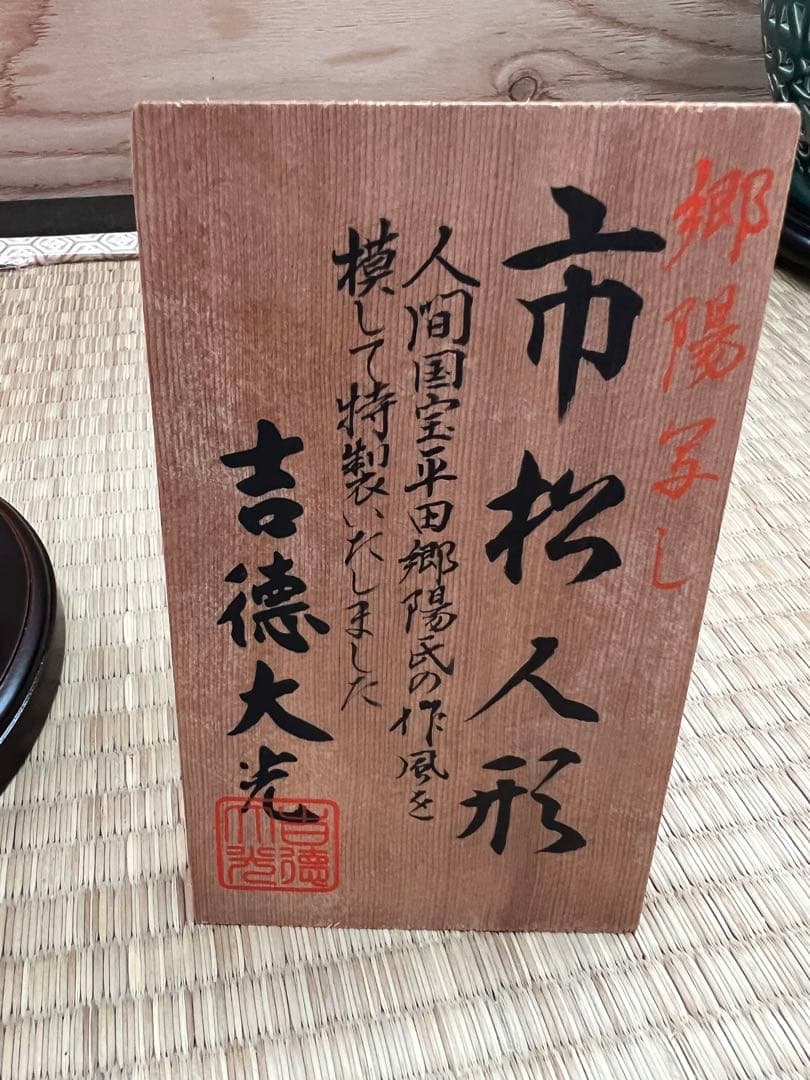 郷陽写し
市松人形
人間国宝平田郷陽氏の作風を
模して特製いたしました
吉德大光
吉德大光